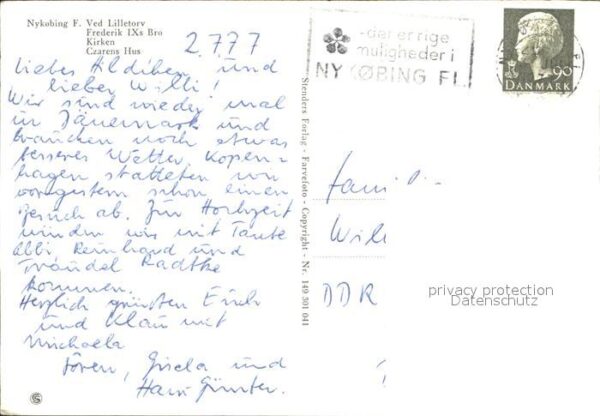 Nykøbing F. Ved Lilletorv
Frederik IXs Bro
Kirken
Czarens Hus
2.7.77
Liebes Hildchen und
lieber Willi!
Wir sind wieder mal
in Dänemark und
brauchen noch etwas
besseres Wetter. Kopen-
hagen statteten wir
vorgestern schon einen
Besuch ab. Zur Hochzeit
würden wir mit Tante
Abbi Reinhard und
Traudel Radtke
kommen.
Herzlich grüssen Euch
und Klaus mit
Michaela
Sören, Gisela und
Hans Günter.
Stenders Forlag - Farvefoto - Copyright - Nr. 149 301 041
- der er rige
muligheder i
NYKØBING FL.
90
DANMARK
Fami
Will
DDR
privacy protection
Datenschutz